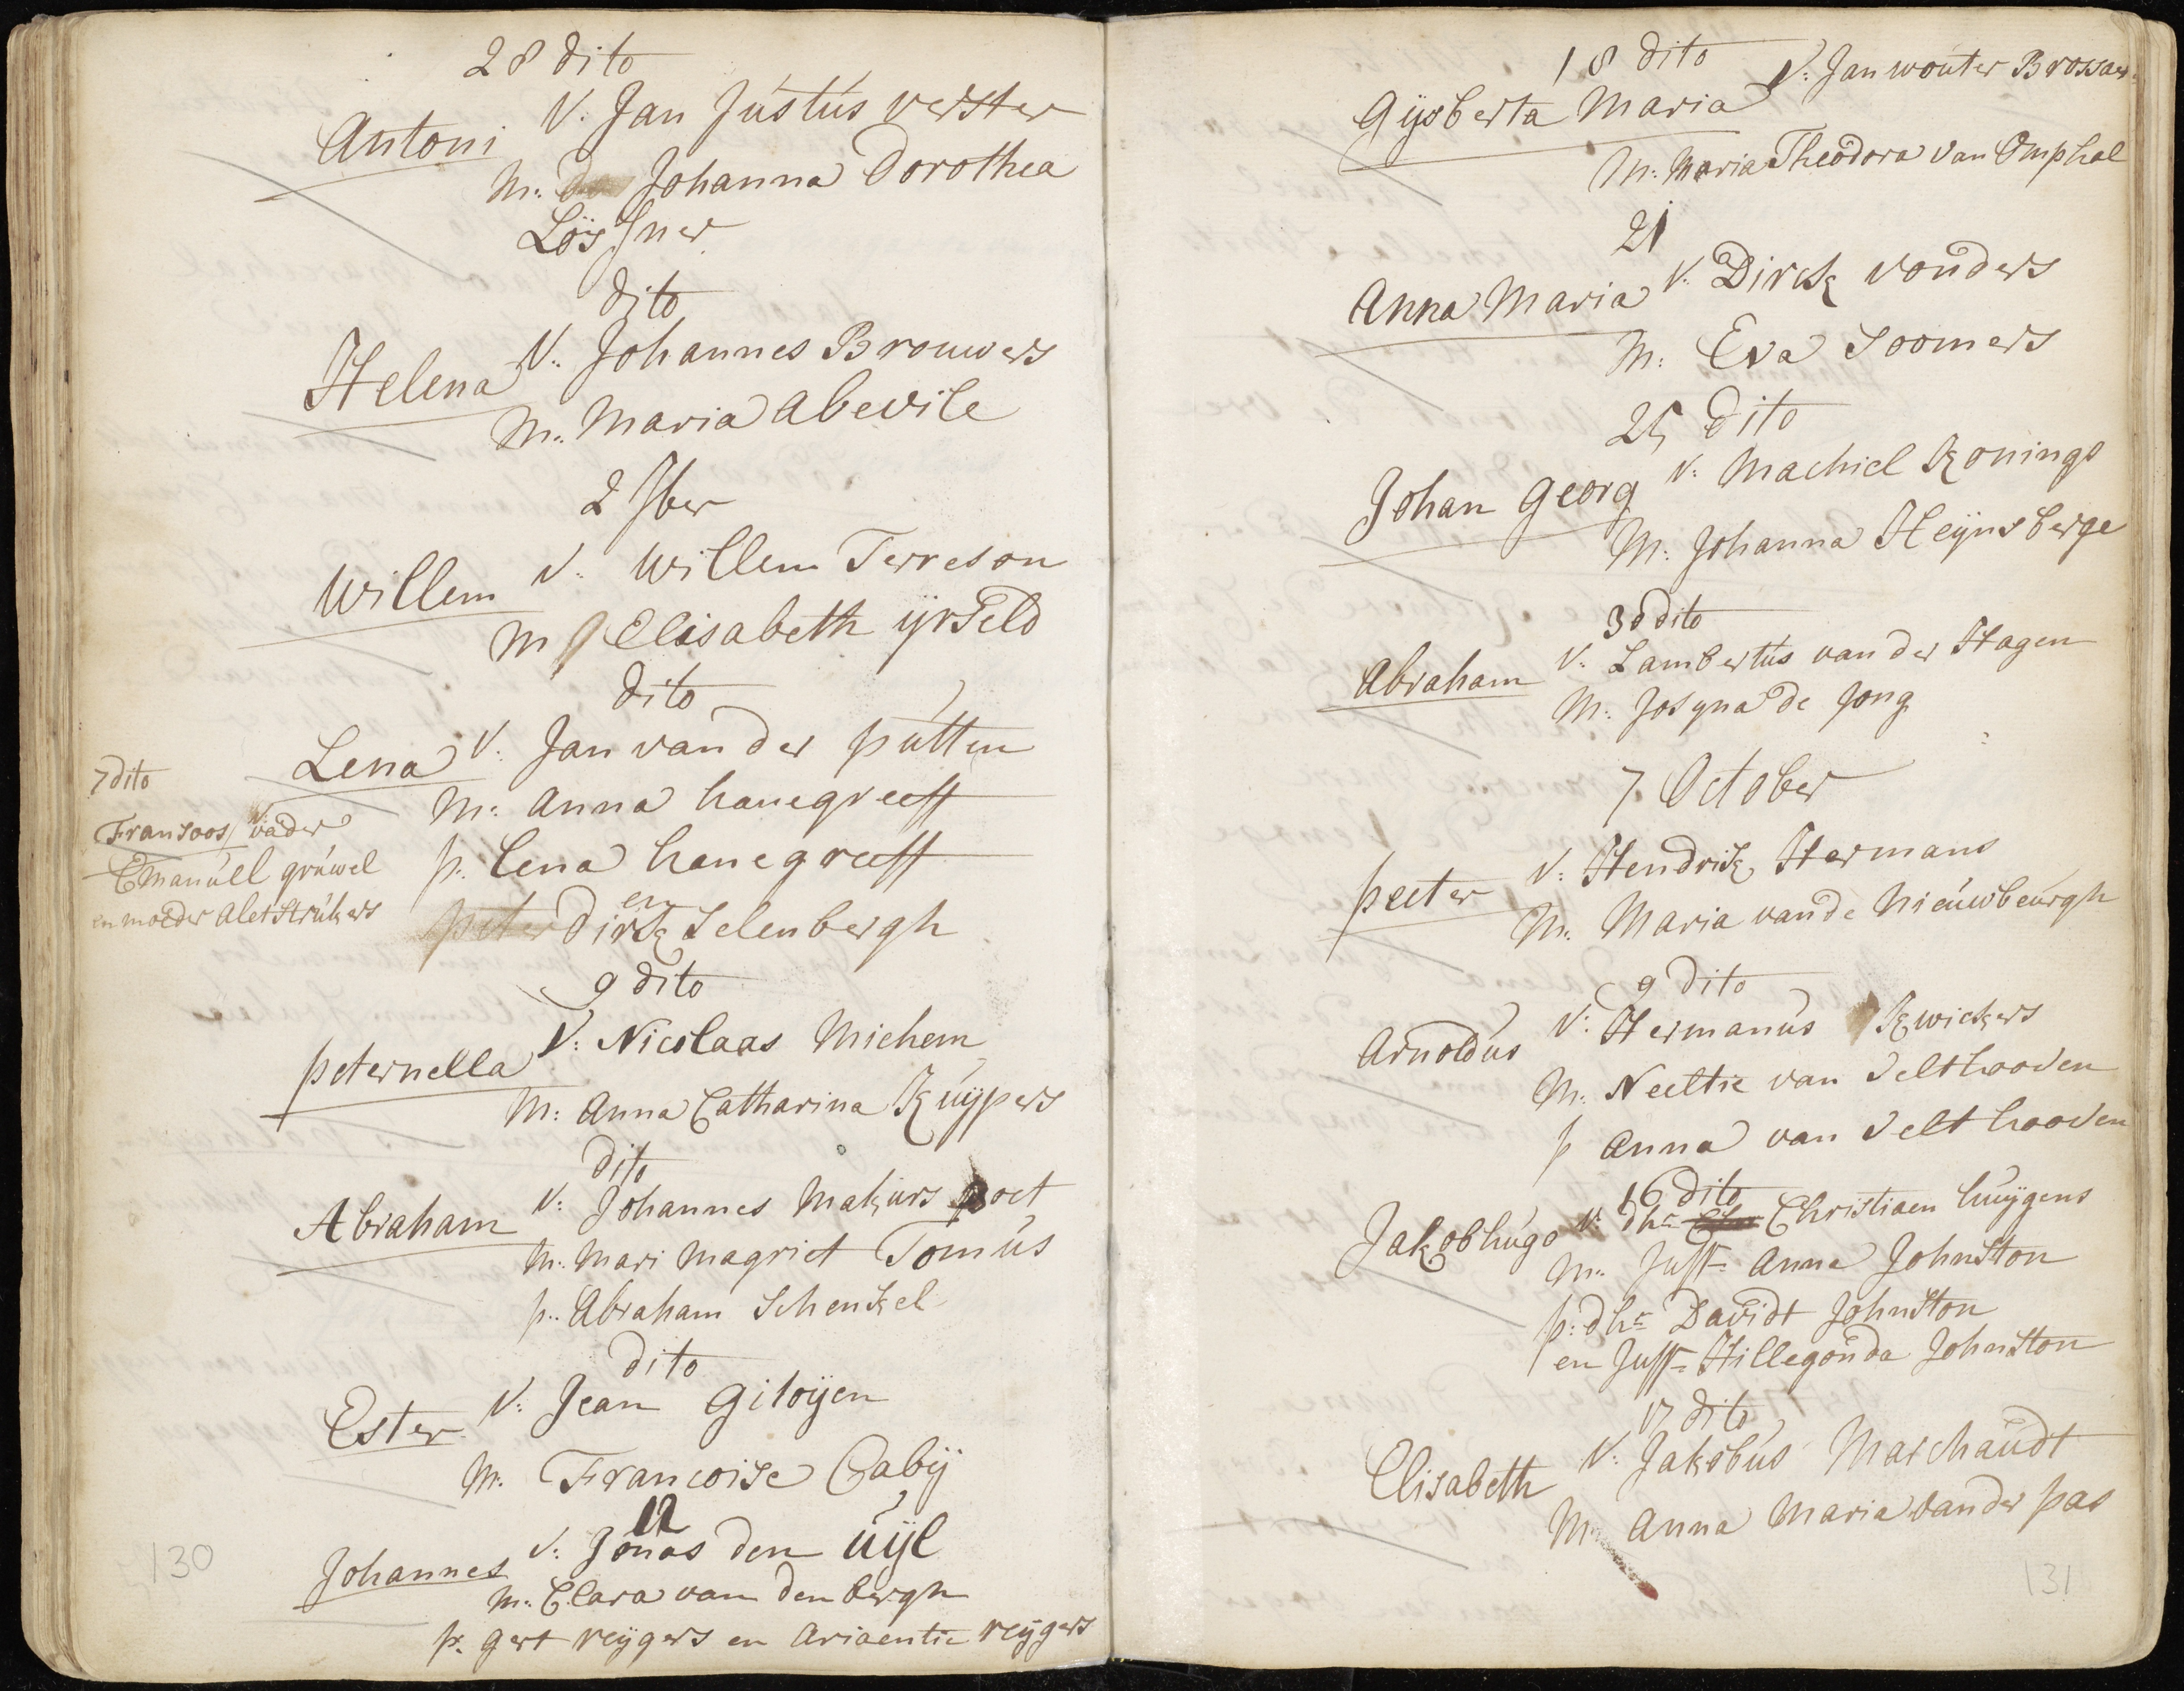 28 dito
Antoni V. Jan Justus verster
M: Johanna Dorothea
Löÿsner
dito
Helena V: Johannes Brouwers
M: Maria Abevile
2 7ber
Willem V: Willem Terreson
M Elisabeth ijrseld
dito
Lena V: Jan van der putten
M: Anna hanegreeff
p: lena hanegreeff
en
peter dirk Selenbergh
7 dito
Fransoos vader
Emanuel gruwel
en moeder Alet Strukers
9 dito
peternella V: Nicolaas Michem
M: Anna Catharina Kuÿpers
dito
Abraham V: Johannes Makurs poet
M: Mari Magriet Tomus
p: Abraham Schenkel
dito
Ester V: Jean Giloÿen
M: Francoise Cabÿ
12
Johannes V: Jonas den uÿl
M: Clara van den bergh
p: gert reÿgers en Ariaentie reÿgers
130
18 dito
Gÿsberta Maria V: Jan wouter Brossaer
M: Maria Theodora van Omphal
21
Anna Maria V: Dirck vonders
M: Eva Soomers
25 dito
Johan Georg V: Machiel Konings
M: Johanna Heÿnsberge
30 dito
Abraham V: Lambertus van der Hagen
M: Josyna de Jong
7 October
peeter V: Hendrik Hermans
M: Maria van de Nieuwbeurgh
9 dito
Arnoldus V: Hermanus Kwickers
M: Neeltie van Velthooven
p Anna van Velthooven
16 dito
Jakob hugo V: dhr Christiaen huÿgens
M: Juff= Anna Johnston
p: dhr Davidt Johnston
en Juff= Hillegonda Johnston
17 dito
Elisabeth V: Jakobus Marchandt
M: Anna Maria vander pas
131